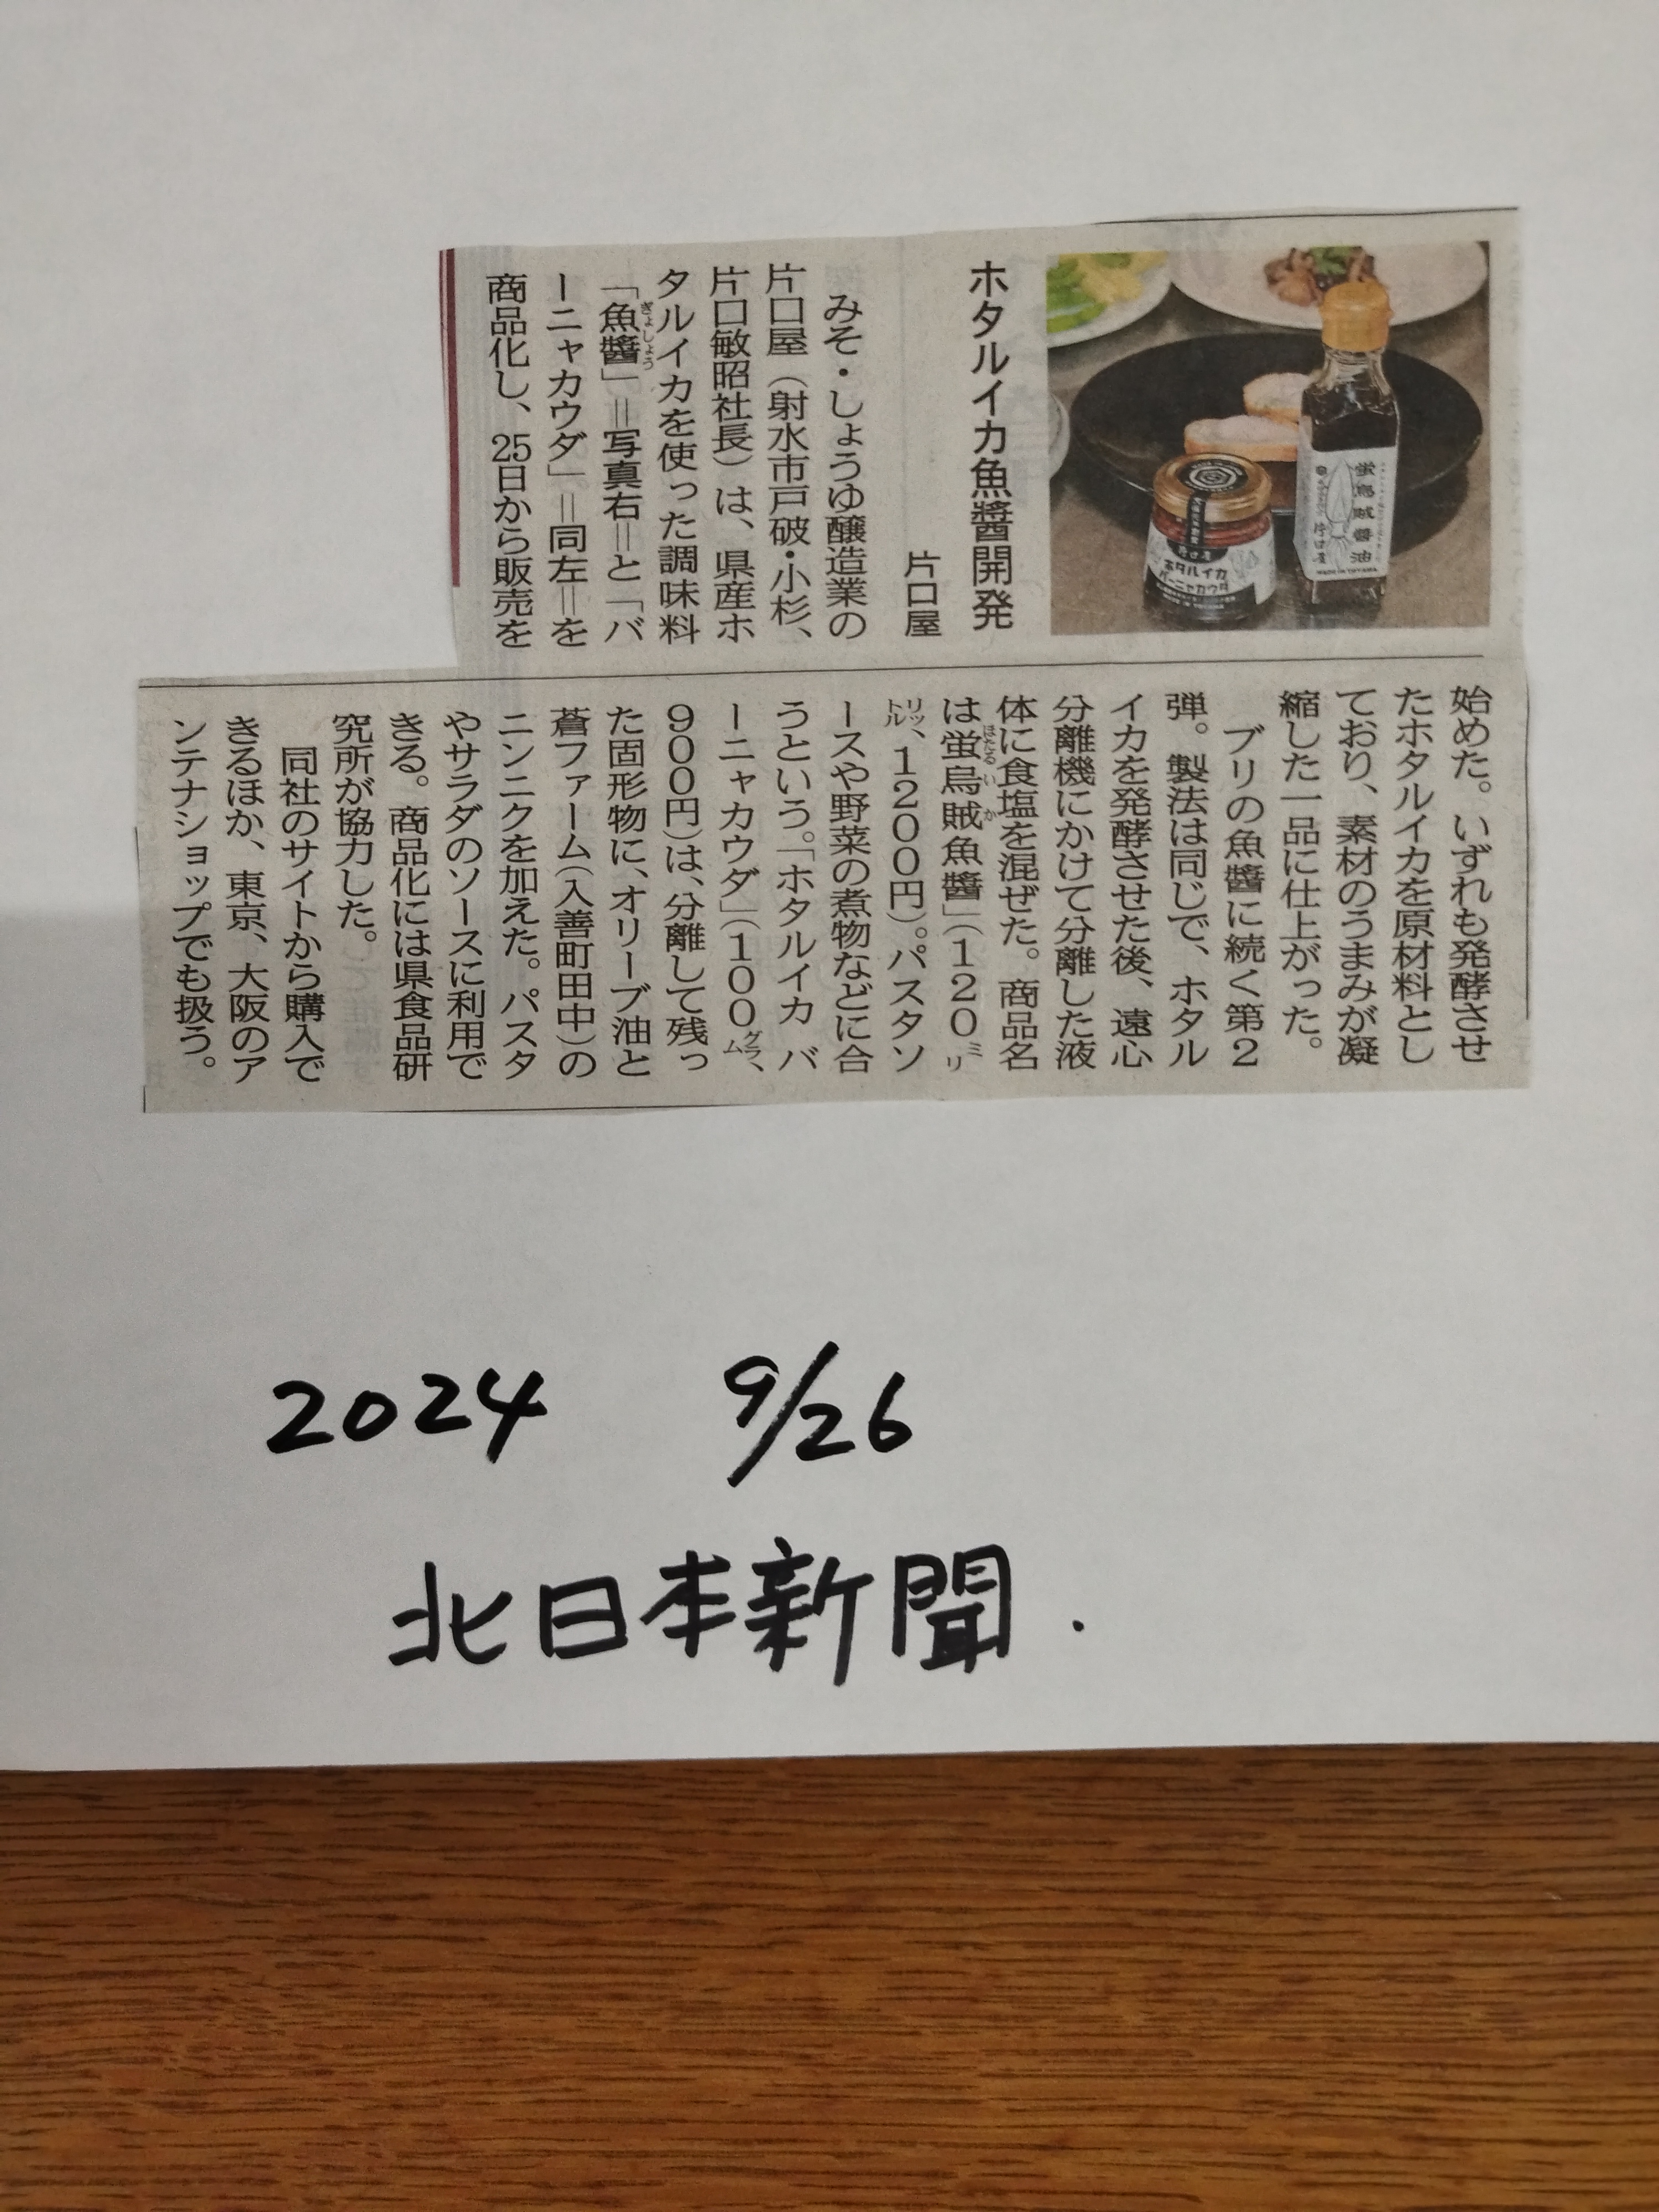 ホタルイカ魚醬開発
片口屋
みそ・しょうゆ醸造業の
片口屋（射水市戸破・小杉、
片口敏昭社長）は、県産ホ
タルイカを使った調味料
「魚醬」＝写真右＝と「バ
ぎょしょう
ーニャカウダ」＝同左＝を
商品化し、25日から販売を
始めた。いずれも発酵させ
たホタルイカを原材料とし
ており、素材のうまみが凝
縮した一品に仕上がった。
ブリの魚醬に続く第2
弾。製法は同じで、ホタル
イカを発酵させた後、遠心
分離機にかけて分離した液
体に食塩を混ぜた。商品名
は蛍烏賊魚醬」（120ミリ
ほたるいか
リットル、1200円）。パスタソ
ースや野菜の煮物などに合
うという。「ホタルイカ バ
ーニャカウダ」（100グラム、
900円）は、分離して残っ
た固形物に、オリーブ油と
蒼ファーム（入善町田中）の
ニンニクを加えた。パスタ
やサラダのソースに利用で
きる。商品化には県食品研
究所が協力した。
同社のサイトから購入で
きるほか、東京、大阪のア
ンテナショップでも扱う。
蛍烏賊醬油
片口屋
MADE IN TOYAMA
ホタルイカ
バーニャカウダ
2024 9/26
北日本新聞.